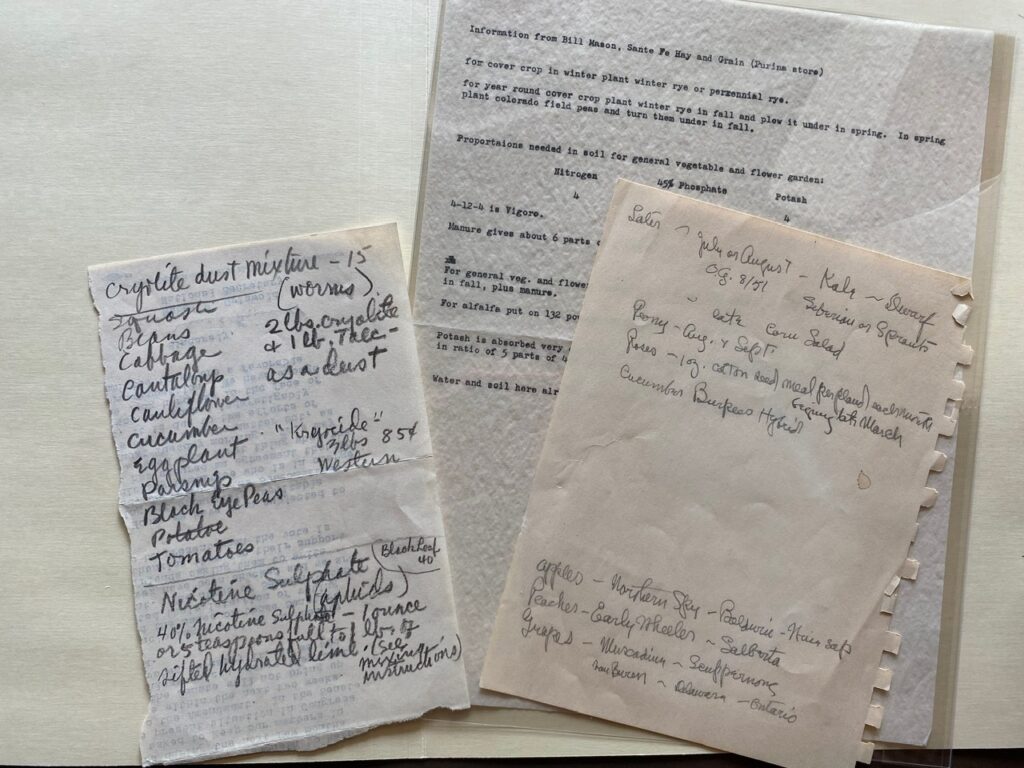 Information from Bill Mason, Sante Fe Hay and Grain (Purina store)
for cover crop in winter plant winter rye or perennial rye.
for year round cover crop plant winter rye in fall and plow it under in spring. In spring
plant colorado field peas and turn them under in fall.
Proportaions needed in soil for general vegetable and flower garden:
Nitrogen 45% Phosphate Potash
4 4
4-12-4 is Vigoro.
Manure gives about 6 parts
For general veg. and flower
in fall, plus manure.
For alfalfa put on 132
Potash is absorbed very
in ratio of 5 parts of
Water and soil here
Cryolite dust mixture - 15
(worms)
Squash
Beans
Cabbage
Cantaloup
Cauliflower
Cucumber
Eggplant
Parsnip
Black Eye Peas
Potatoe
Tomatoes
2 lbs. cryolite
& 1 lb. Talc -
as a dust
"Kryocide"
3 lbs 85¢
Western
Nicotine Sulphate (Black Leaf 40)
(aphids)
40% nicotine sulphate - 1 ounce
or 5 teaspoons full to 1 lb. of
sifted hydrated lime. (See
mixing
instructions)
Later ~ July or August - Kale ~ Dwarf
O.G. 8/51 Siberian or Sprouts
" late Corn Salad
Peony - Aug. & Sept.
Roses - 1 oz. cotton seed meal per plant each month
begining late March
Cucumber Burpees Hybrid
apples - Northern Spy - Baldwin -
Peaches - Early Wheeler ~ Salberta
Grapes - Muscadine ~ Scuppernong
Van Buren ~ Delaware - Ontario